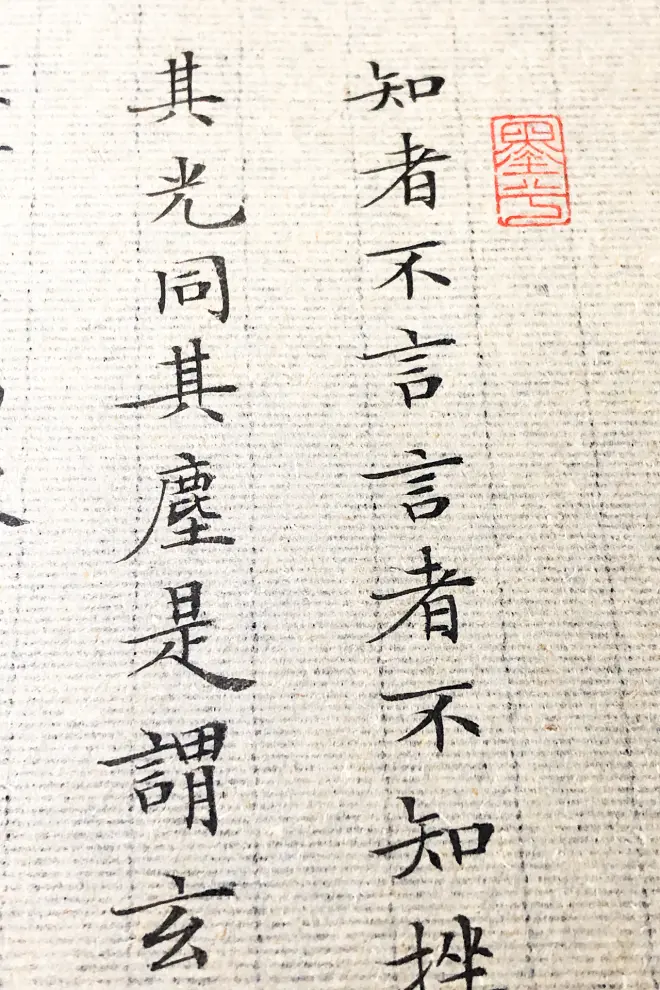 知者不言言者不知挫
其光同其塵是謂玄